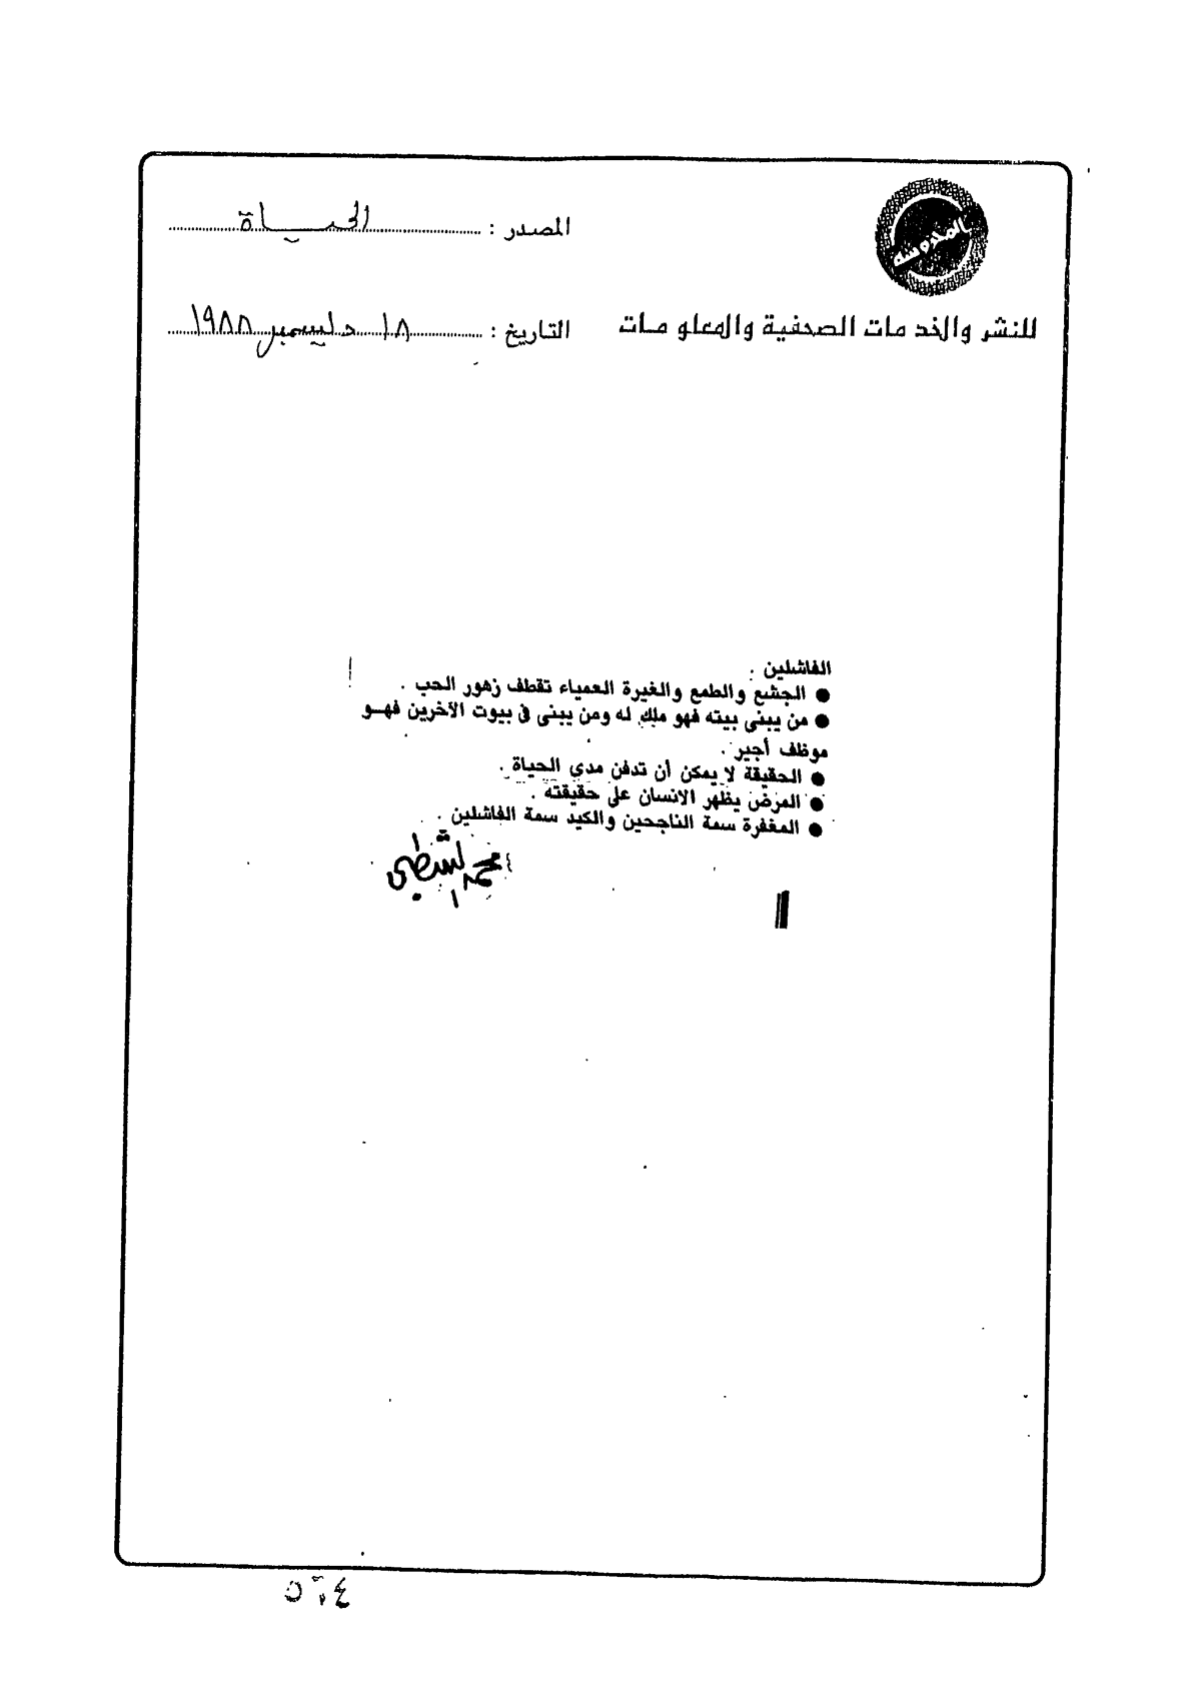 المصدر : الحياة
للنشر والخدمات الصحفية والمعلومات
التاريخ : ١٨ ديسمبر ١٩٨٨
الفاشلين .
● الجشع والطمع والغيرة العمياء تقطف زهور الحب .
● من يبنى بيته فهو ملك له ومن يبنى فى بيوت الآخرين فهو
موظف أجير .
● الحقيقة لا يمكن أن تدفن مدي الحياة .
● المرض يظهر الانسان على حقيقته .
● المغفرة سمة الناجحين والكيد سمة الفاشلين .